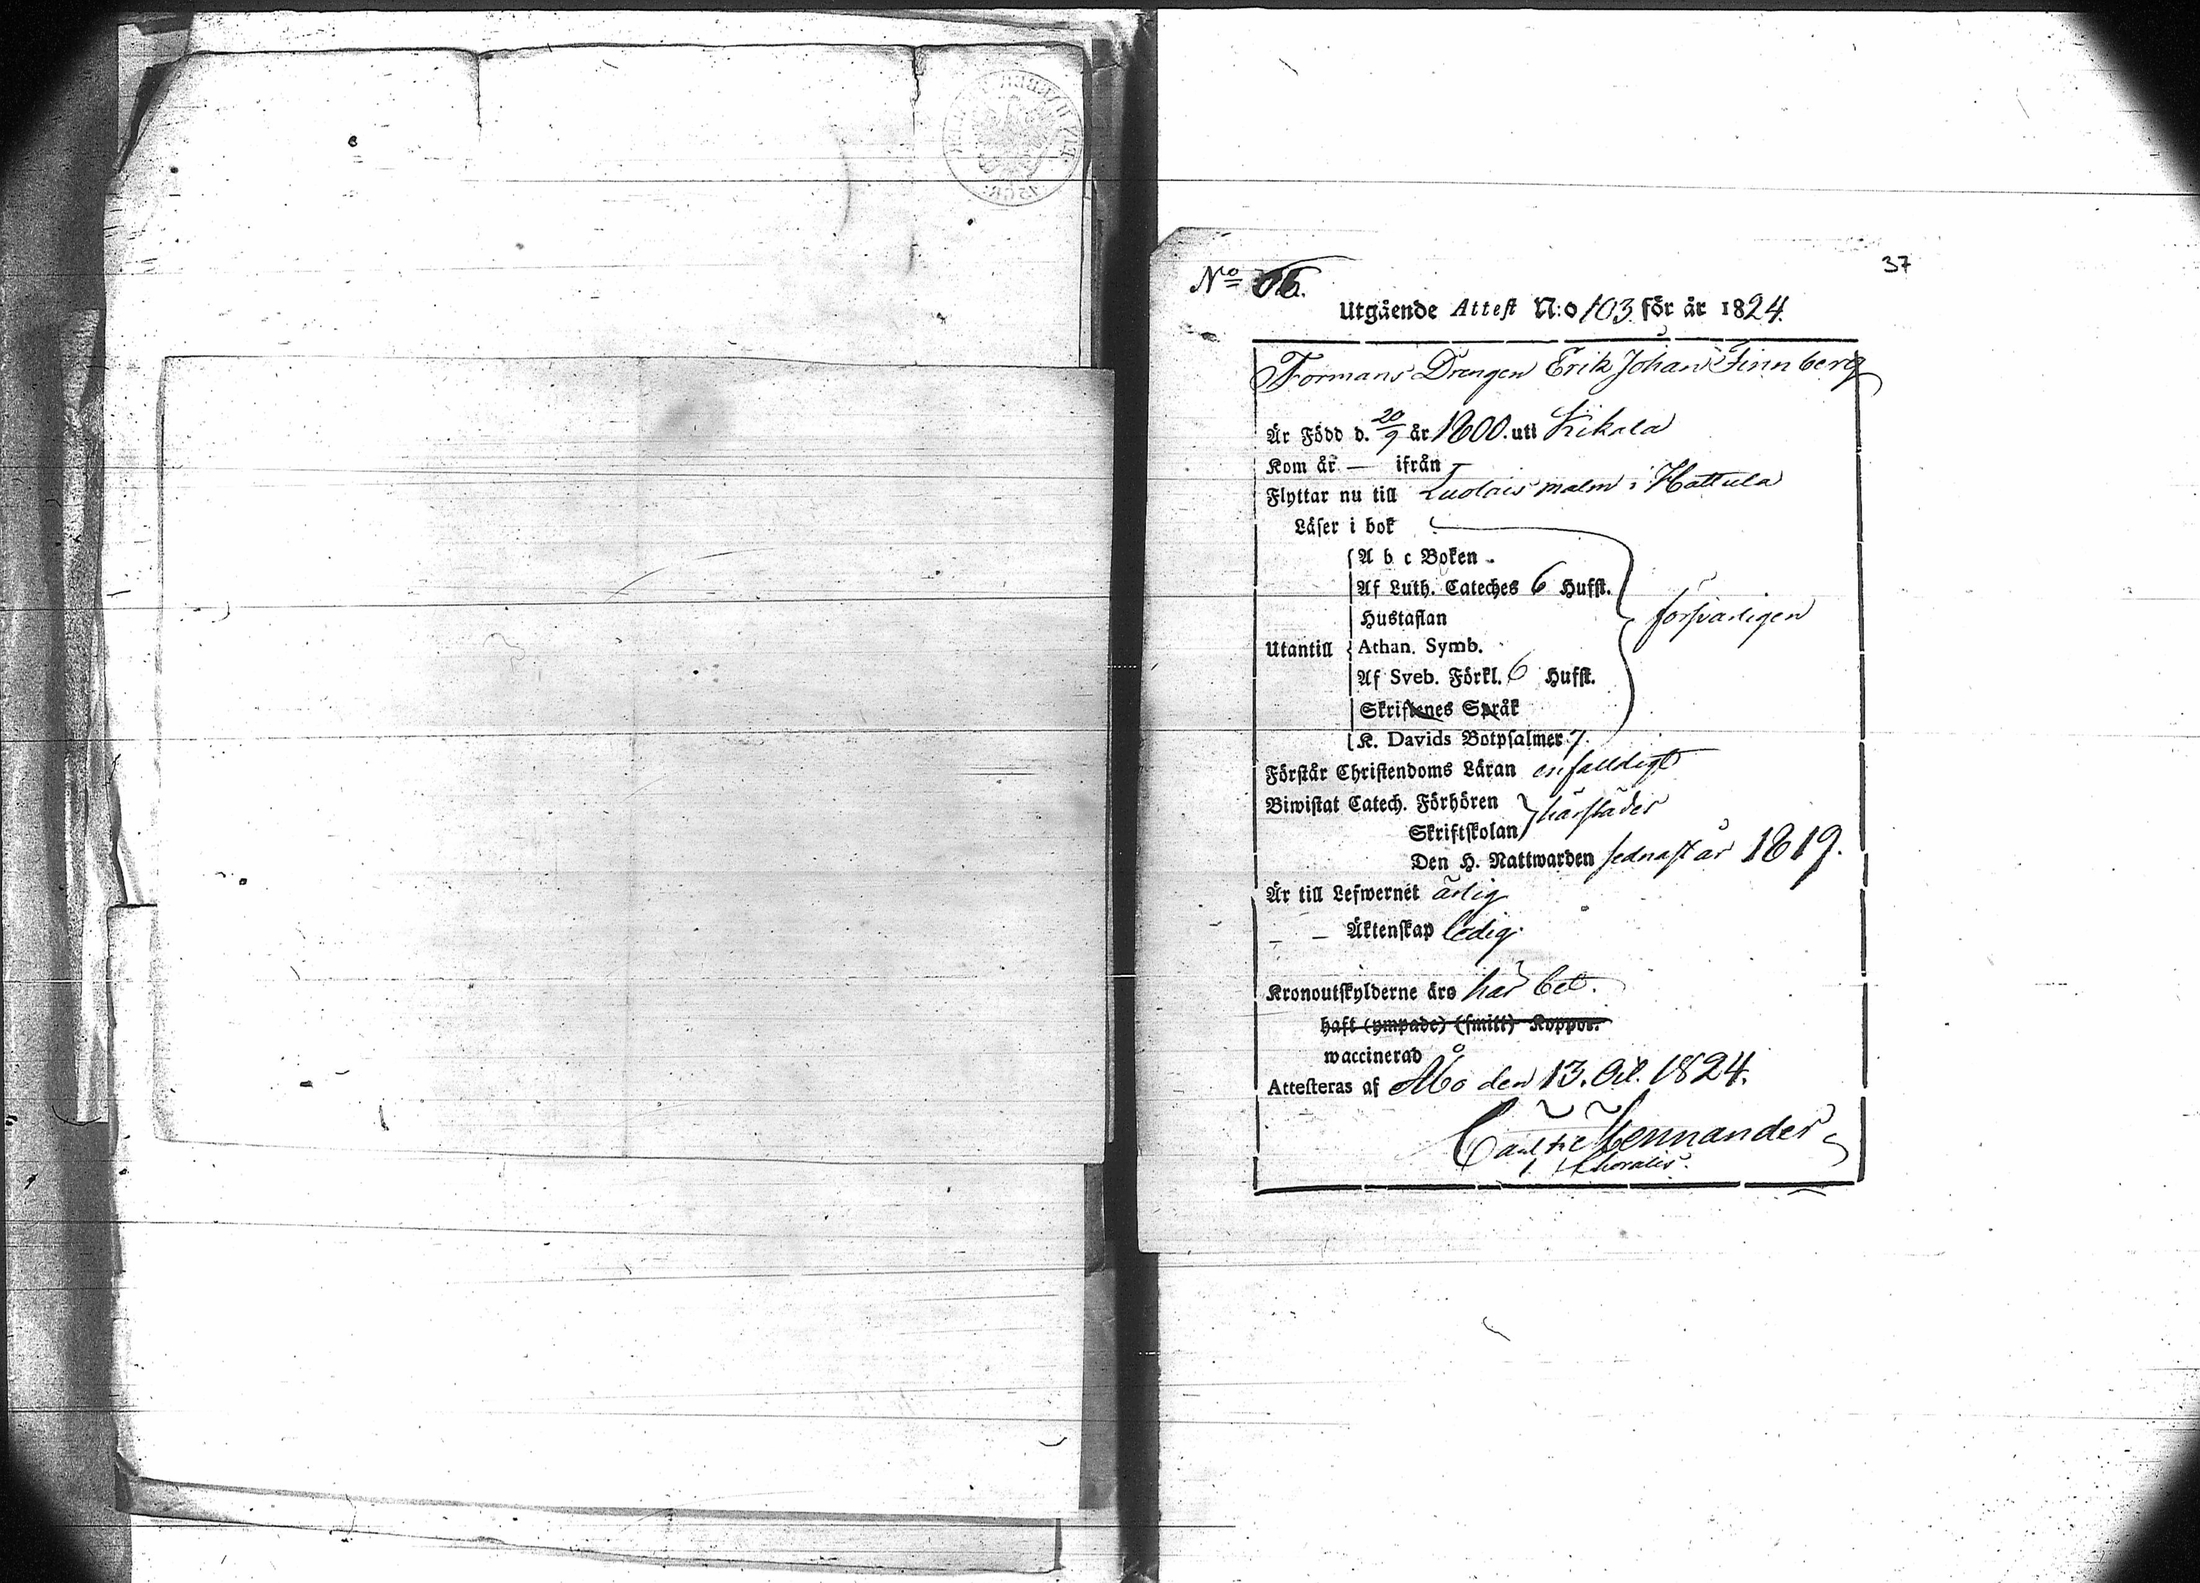 37
No
Utgående Attest N:o 103 för år 1824.
Formans Drengen Erik Johan Finnberg
Är Född d. 20/9 år 1800. uti Kikala
Kom år — ifrån
Flyttar nu till Luolais malm i Hattula
Läser i bok
A b c Boken
Af Luth. Cateches 6 Hufst.
Hustaflan
försvarligen
Utantill Athan. Symb.
Af Sveb. Förkl. 6 Hufst.
Skriftenes Språk
K. Davids Botpsalmer 7.
Förstår Christendoms Läran enfalldigt
Biwistat Catech. Förhören
härstädes
Skriftskolan
Den H. Nattwarden sednast år 1819.
Är till Lefwernet ärlig
— — Äktenskap ledig.
Kronoutskylderne äro här bet.
haft (ympade) (smitt) Koppor.
waccinerad
Attesteras af Åbo den 13. Oct. 1824.
Mennander